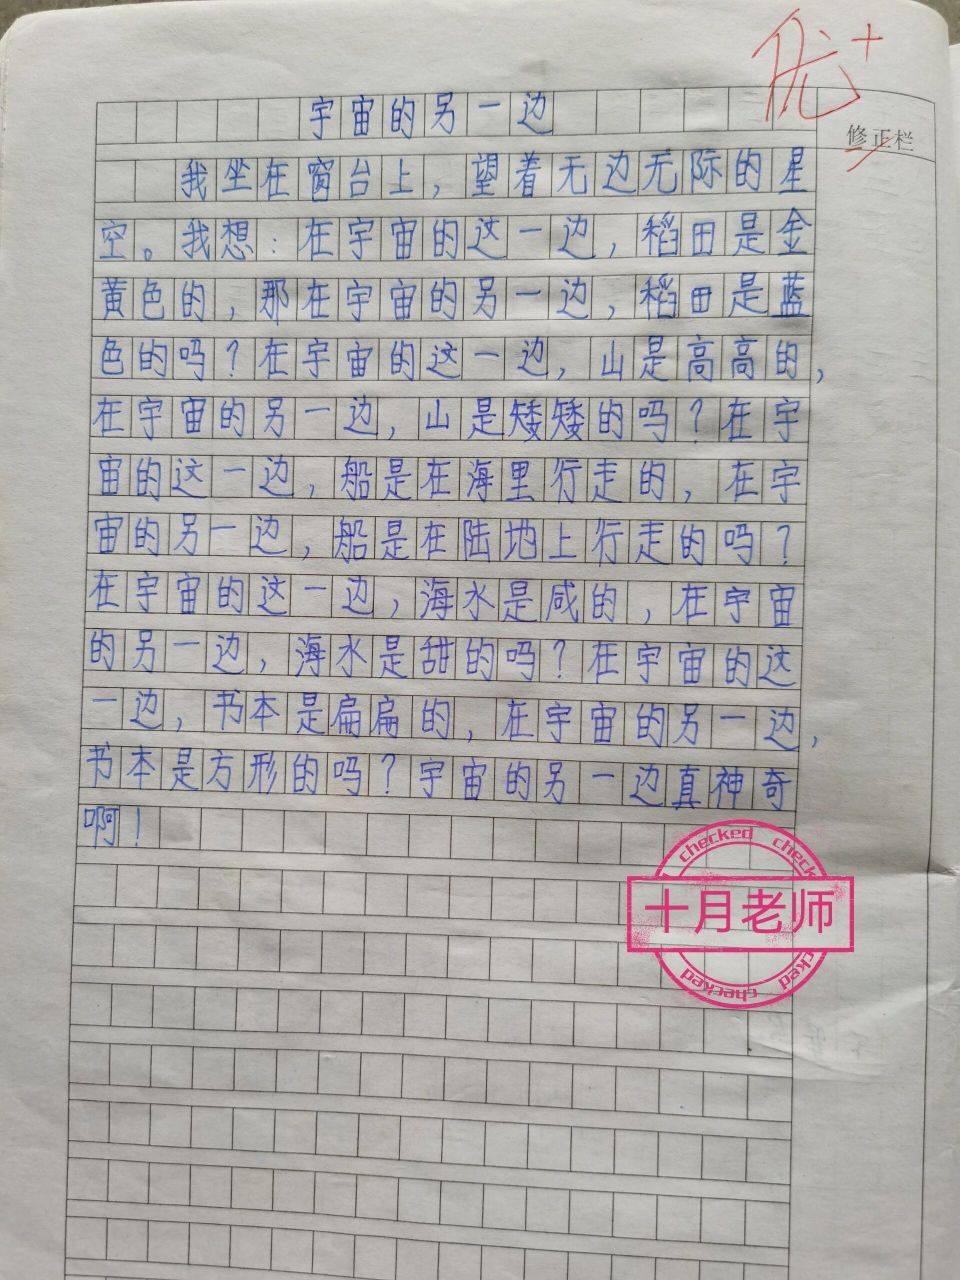 优+
宇宙的另一边
修正栏
我坐在窗台上，望着无边无际的星
空。我想：在宇宙的这一边，稻田是金
黄色的，那在宇宙的另一边，稻田是蓝
色的吗？在宇宙的这一边，山是高高的，
在宇宙的另一边，山是矮矮的吗？在宇
宙的这一边，船是在海里行走的，在宇
宙的另一边，船是在陆地上行走的吗？
在宇宙的这一边，海水是咸的，在宇宙
的另一边，海水是甜的吗？在宇宙的这
一边，书本是扁扁的，在宇宙的另一边，
书本是方形的吗？宇宙的另一边真神奇
啊！
checked checked
十月老师
checked checked